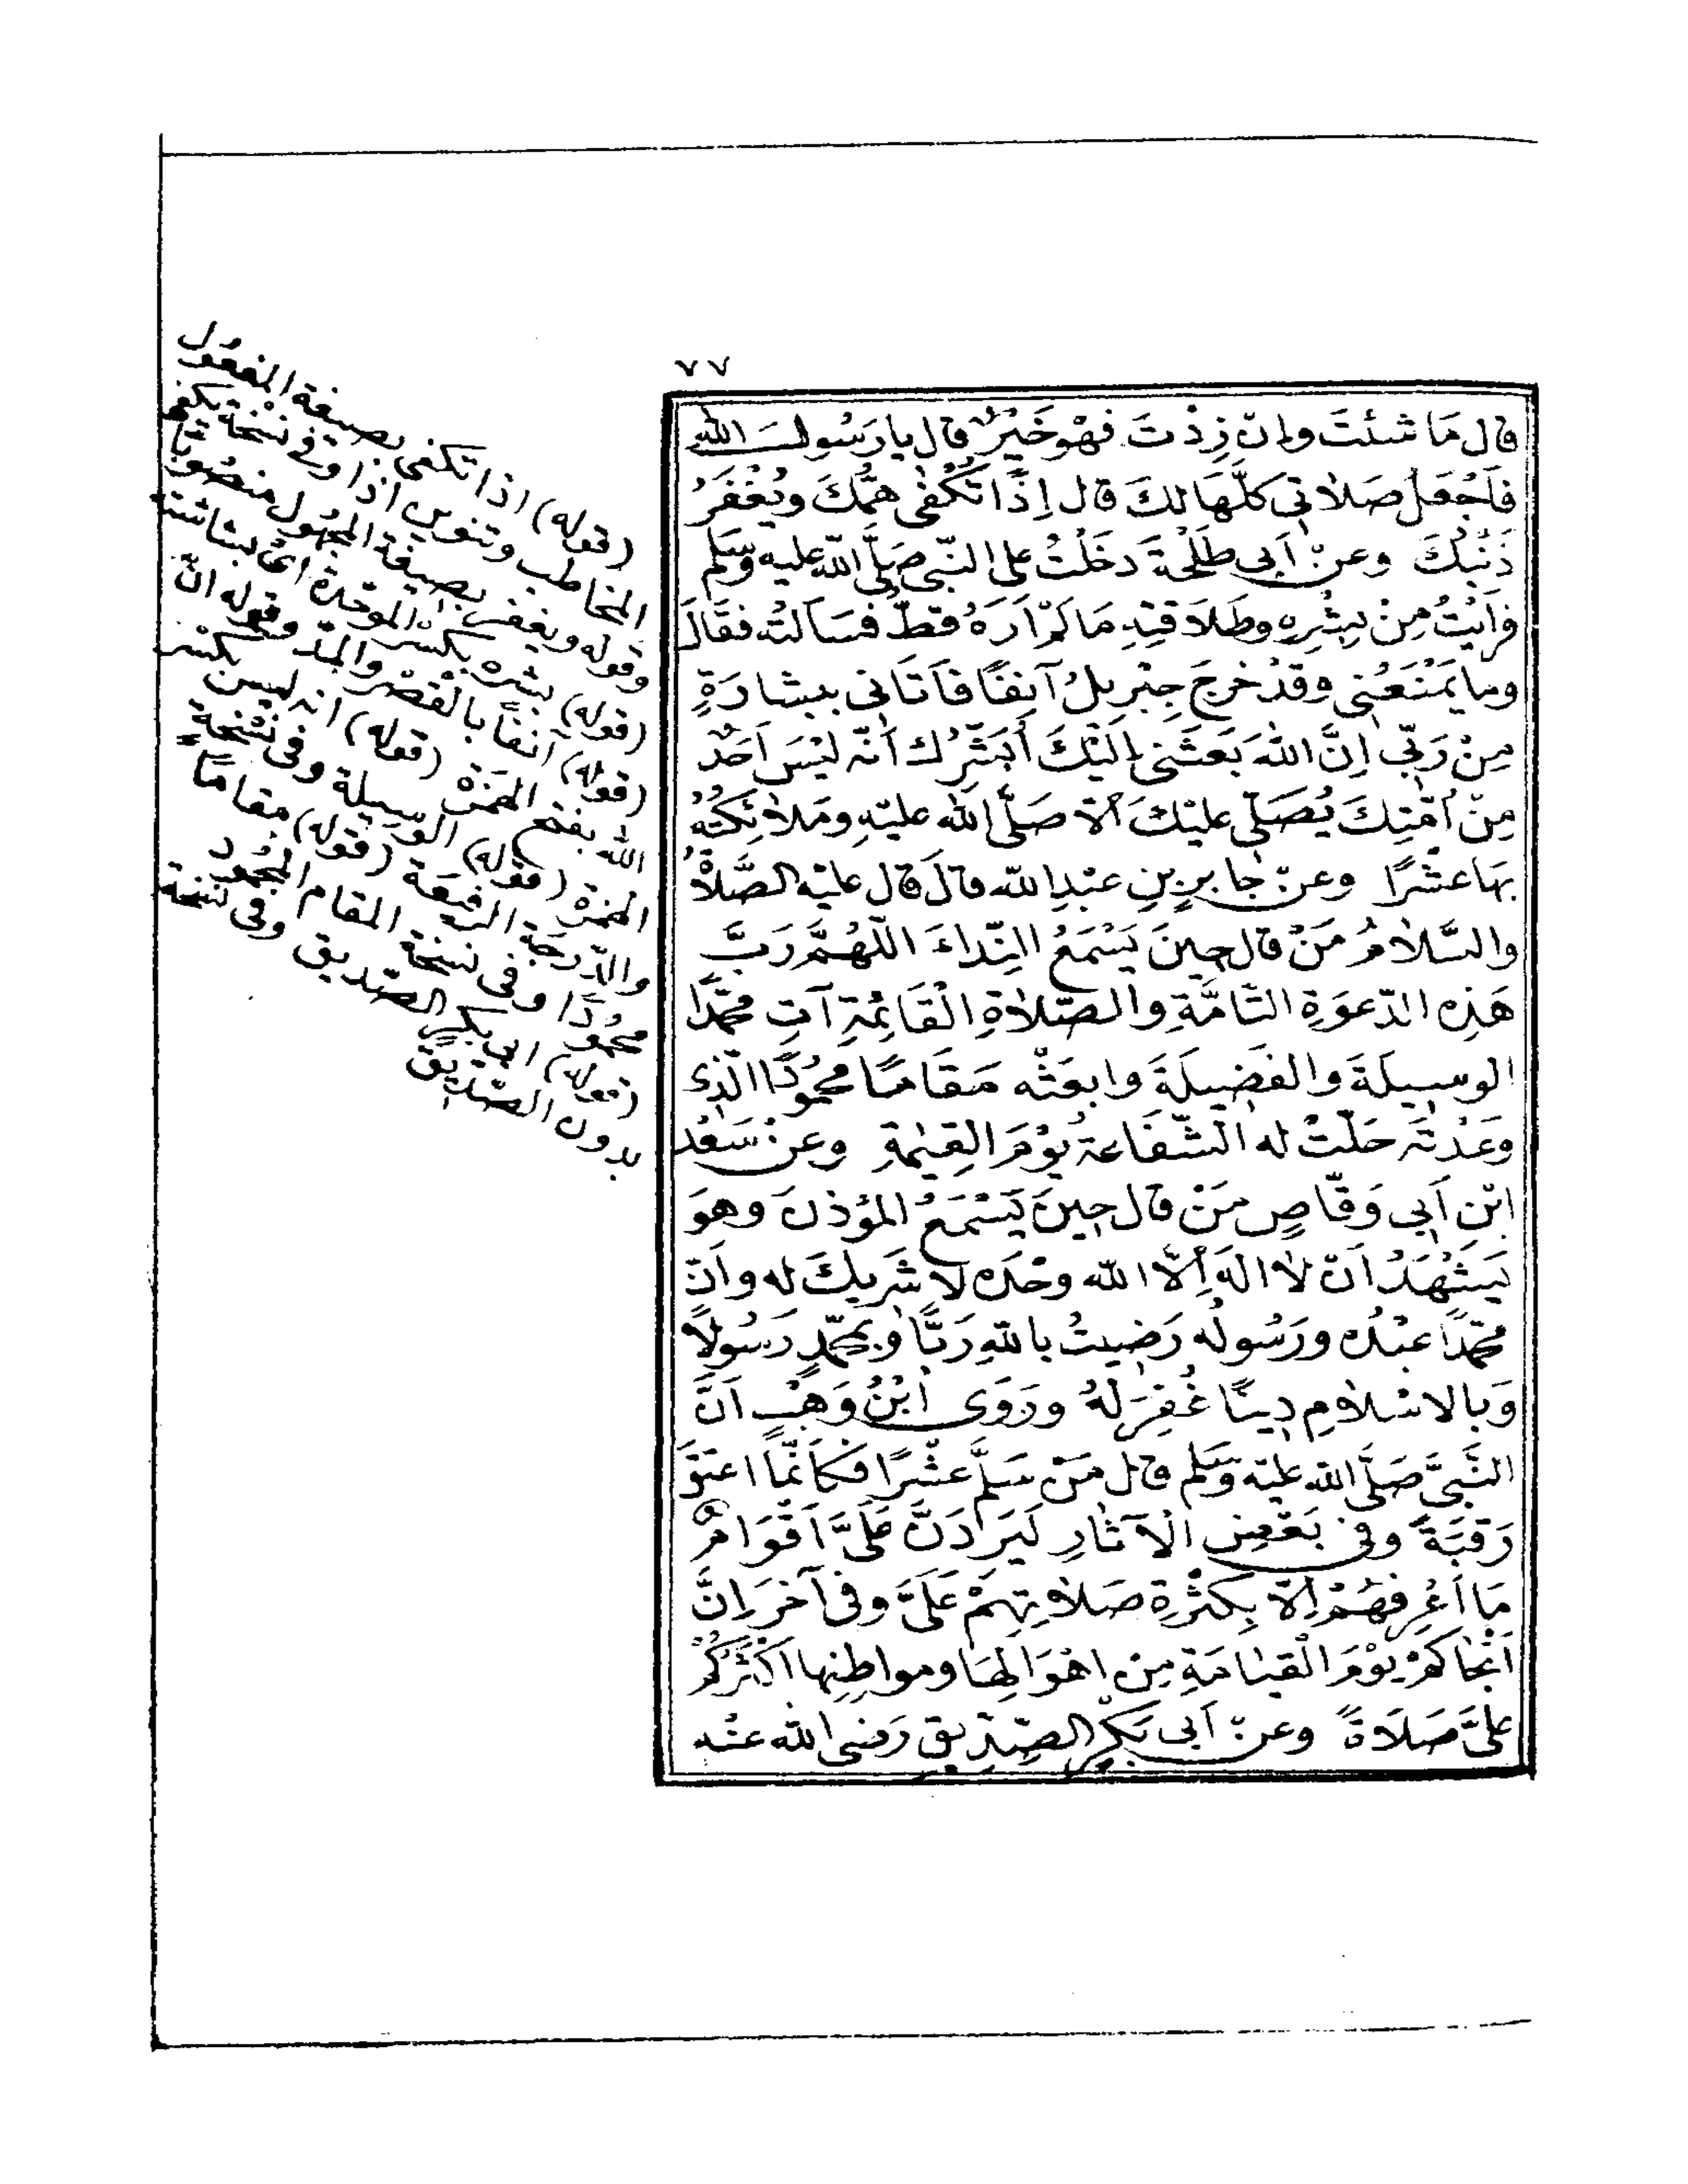 ٧٧
قال مَا شئتَ وإن زِدْتَ فهْو خَيْرٌ قال يا رَسُولَ الله
فَأجْعَلُ صَلاتي كلَّهَا لكَ قال إذًا تُكْفٰى همَّكَ ويُغْفَرُ
ذَنْبُكَ وعنْ أَبى طَلْحَةَ دخَلْتُ على النّبى صَلَّى اللّه عليه وسَلم
فرَأَيْتُ مِنْ بِشْرِهِ وطَلَاقَتِهِ مَا لَمْ أرَهُ قطّ فسَألته فقَالَ
وما يَمْنَعُنى وقَدْ خرجَ جِبْريلُ آنِفًا فَأتَانى ببِشارَةٍ
مِنْ رَبّى إنَّ اللهَ بَعَثَنى إلَيْكَ أُبَشّرُك أنّه ليْسَ أحَدٌ
مِنْ أمّتِكَ يُصَلّى عليْكَ إلّا صَلَّى الله عليْهِ ومَلائكتُهُ
بهَا عشْرًا وعنْ جابر بنِ عبْدِ الله قالَ قال عليْه الصَّلاةُ
والسَّلامُ مَنْ قال حِينَ يَسْمَعُ النِّداءَ اللّهُمَّ رَبَّ
هَذِه الدّعْوَةِ التّامَّةِ والصّلاةِ الْقَائمْةِ آتِ محمّدًا
الوسِيلَةَ والفَضِيلَةَ وابعَثْه مَقَامًا محمُودًا الّذِى
وعَدْتَه حَلّتْ له الشّفَاعَةُ يَوْمَ القِيٰمَةِ وعنْ سَعْد
ابْنِ أَبى وَقَّاصٍ مَنْ قال حِينَ يَسْمَعُ المؤذنَ وهوَ
يَتَشَهَّدُ أنْ لا الٰهَ إلّا الله وحْدَه لا شَريكَ له وأنّ
محمّدًا عبْدُه ورَسُولُه رَضِيتُ باللهِ رَبًّا وبمحمّدٍ رَسُولًا
وَبالاسْلامِ دِينًا غُفِرَ لَهُ ورَوَى ابْنُ وَهْبٍ أنَّ
النَّبىَّ صَلَّى الله عليْه وسَلم قال مَنْ سَلَّمَ عشْرًا فَكَأنَّمَا اعتَقَ
رَقبَةً وفى بَعْضِ الْآثارِ لَيَرِدَنَّ عَلَىَّ أقْوَامٌ
مَا أعْرِفهُمْ إلّا بِكَثْرَةِ صَلاتِهِمْ عَلَىَّ وفى آخَرَ إنَّ
أنْجَاكمْ يَوْمَ الْقيامَةِ مِن اهْوَالِهَا ومواطِنِها أكْثَرُكُمْ
علىَّ صَلَاةً وعنْ أبى بَكْرٍ الصِّدِّيقِ رَضى الله عنْه
(قوله) اذا تكفى بصيغة المفعول
المخاطب وتنوين اذا وفى نسْخة يكفى
وقوله ويغفر بصيغة المجهول منصُوبًا
(قوله) بشره بكسْر الموحّدة اىْ بشاشته
(قوله) آنفًا بالْقصْر والمدّ وقوله انّ
الله بفتح الهمزة (قوله) انه ليس بكسْر
الهمزة (قوله) الوسيلة وفى نسْخة
والدّرجَة الرفيعَة (قوله) مقامًا
محمُودًا وفى نسخة المقام المحمُود
(قوله) ابى بكرٍ الصّديق وفى نسخة
بدون الصّدِيق